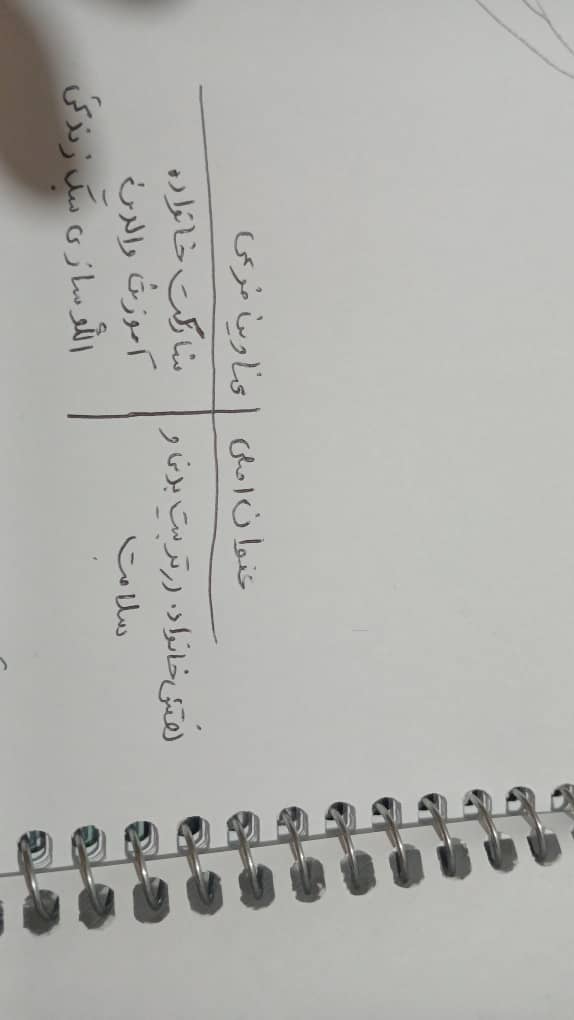 عنوان اصلی | عناوین فرعی
نقش خانواده در تربیت بدنی و | مشارکت خانواده
سلامت | آموزش والدین
الگوسازی سبک زندگی